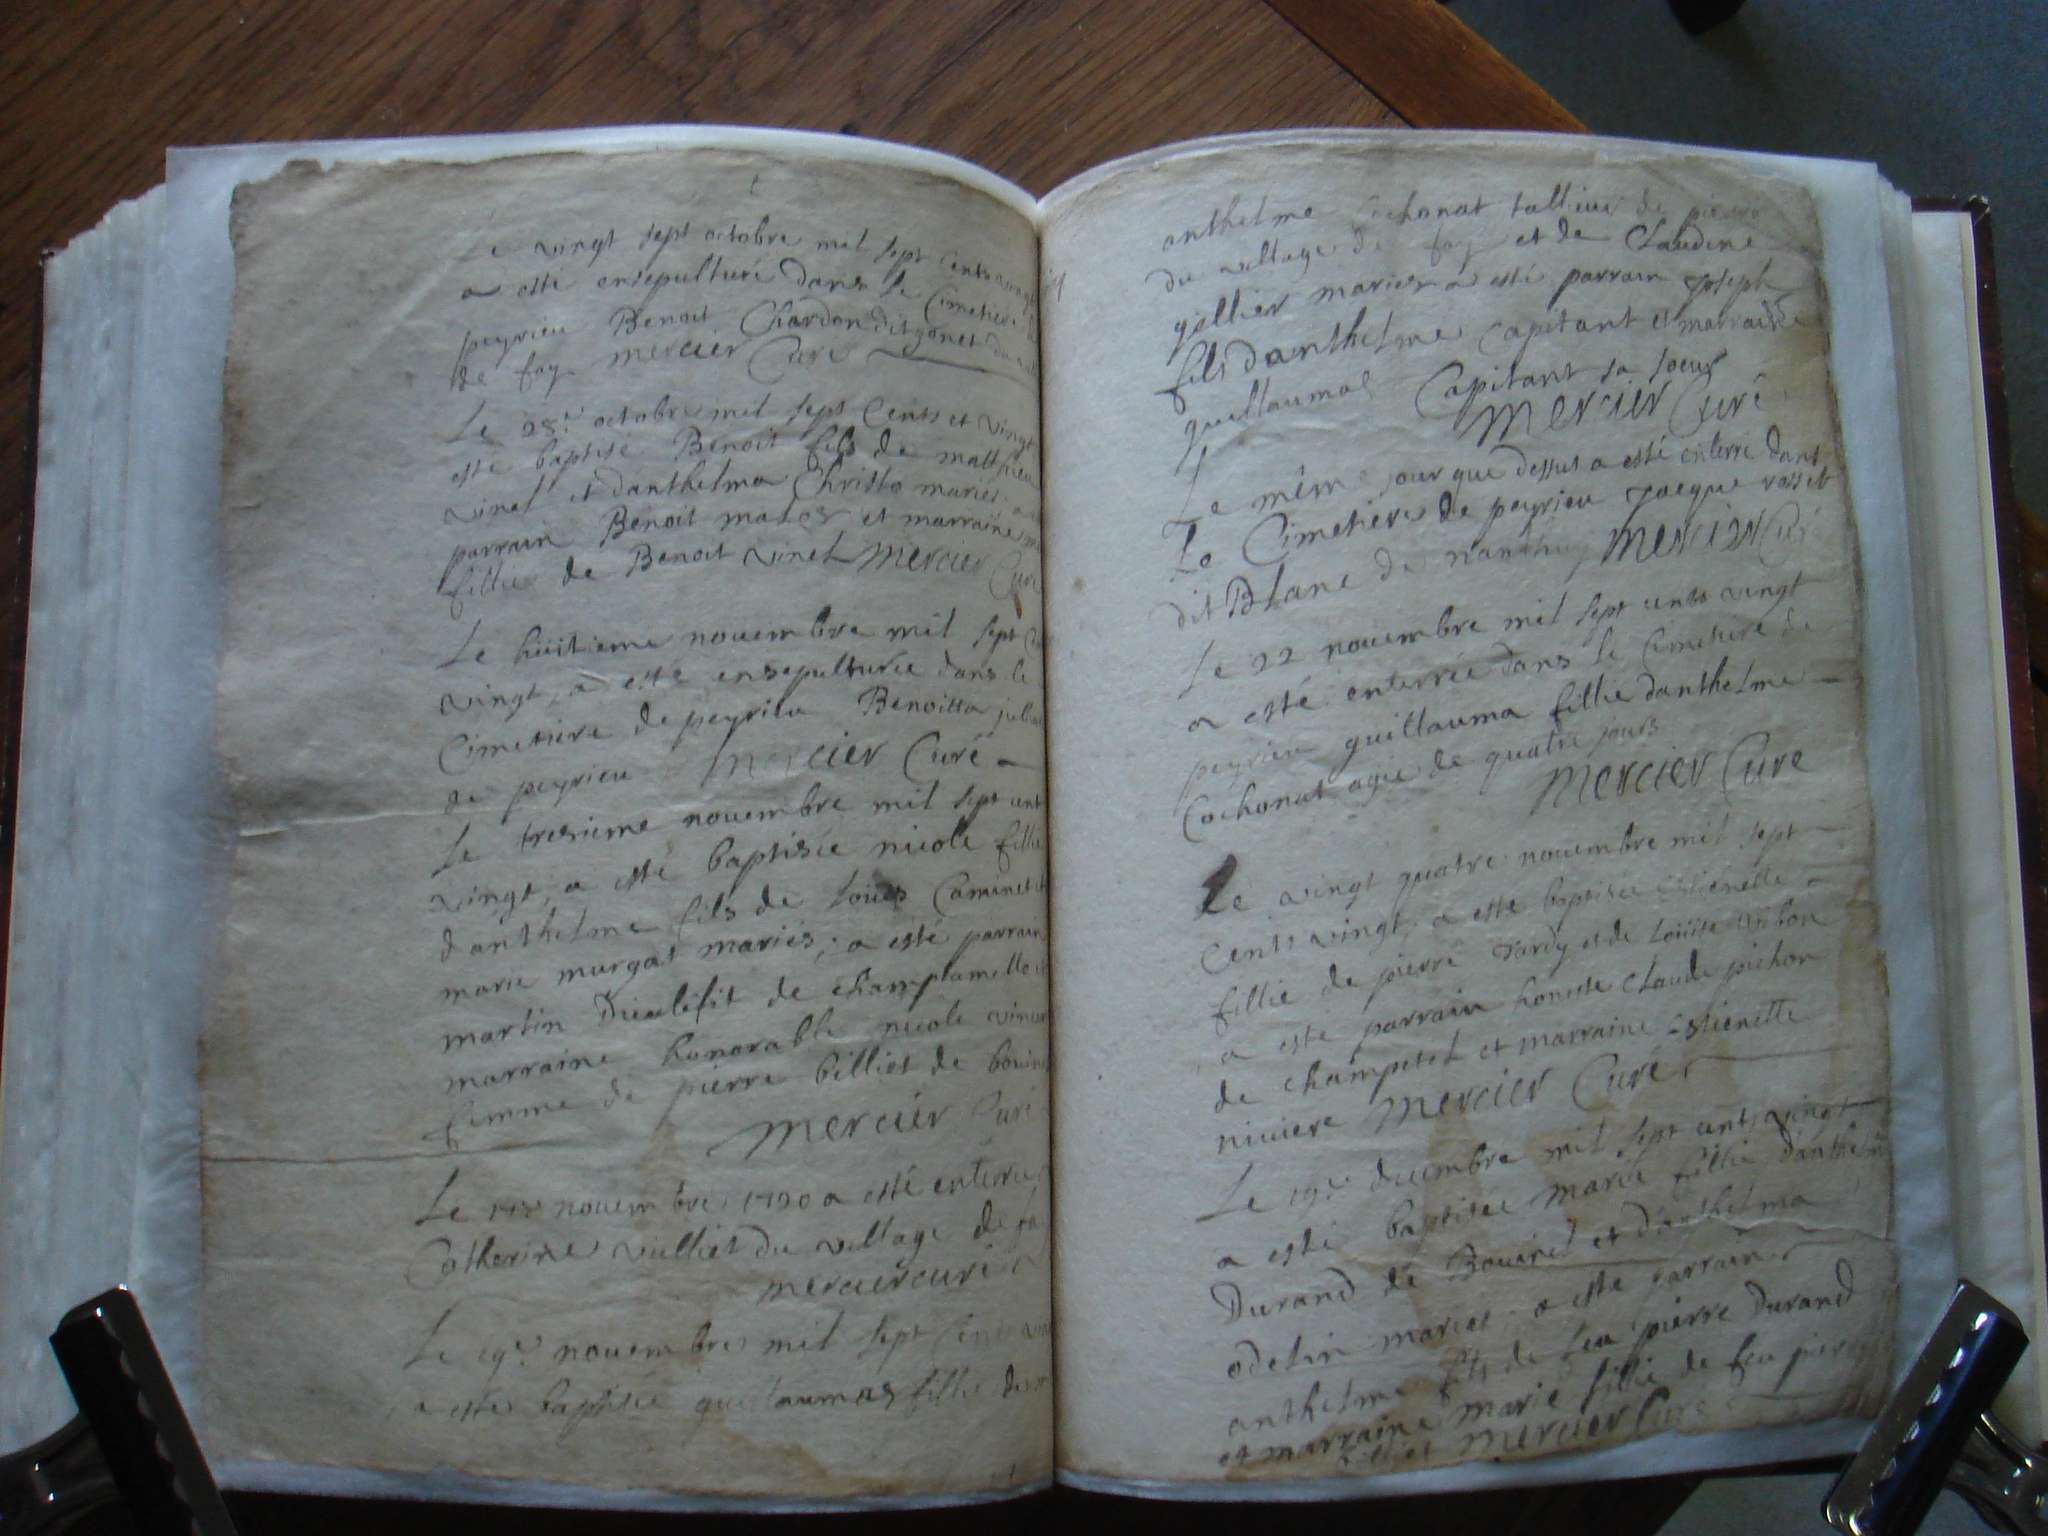 Le vingt sept octobre mil sept cents vingt
a esté ensepulturé dans le Cimetiere de
peyrieu Benoit Chardon dit gonet du
de fay mercier Curé
Le 28e octobre mil sept Cents et vingt
esté baptisé Benoit fils de matthieu
vinet et danthelma Christo mariés
parrain Benoit et marraine
fillie de Benoit vinet mercier Curé
Le huitieme nouembre mil sept
vingt, a esté ensepulturée dans le
Cimetiere de peyrieu Benoitta
de peyrieu mercier Curé
Le tresieme nouembre mil sept cent
vingt, a esté baptisée nicole fillie
danthelme fils de loüis Caminet et
marie murgat mariés, a esté parrain
martin Dieulefit de champtamello et
marraine honorable nicole
femme de pierre billiet de
mercier Curé
Le nouembre 1720 a esté enterrée
Catherine vulliet du village de fa
mercier curé
Le 19e nouembre mil sept Cents
a estée baptisée guillaumas fillie
anthelme Cochonat tallieur de pierre
du village de fay et de Claudine
gallier mariés a esté parrain Joseph
fils danthelme Capitant et marraine
guillaumas Capitant sa soeur
mercier Curé
Le même jour que dessus a esté enterré dans
Le Cimetiere de peyrieu Jacque rosset
dit Blanc de nanthuy mercier Curé
Le 22 nouembre mil sept cents vingt
a esté enterrée dans le Cimetiere de
peyrieu guillauma fillie danthelme
Cochonat agée de quatre jours
mercier Cure
Le vingt quatre nouembre mil sept
Cents vingt, a esté baptisée Estienette
fillie de pierre Tardy et de Loüise
a esté parrain honeste Claude pichon
de champetel et marraine Estienette
niuiere mercier Curé
Le 19e decembre mil sept cents vingt
a esté baptisée marie fillie danthelme
Durand de Bouinel et danthelma
odelin mariés, a esté parrain
anthelme fils de feu pierre Durand
et marraine marie fillie de feu pierre
mercier Cure